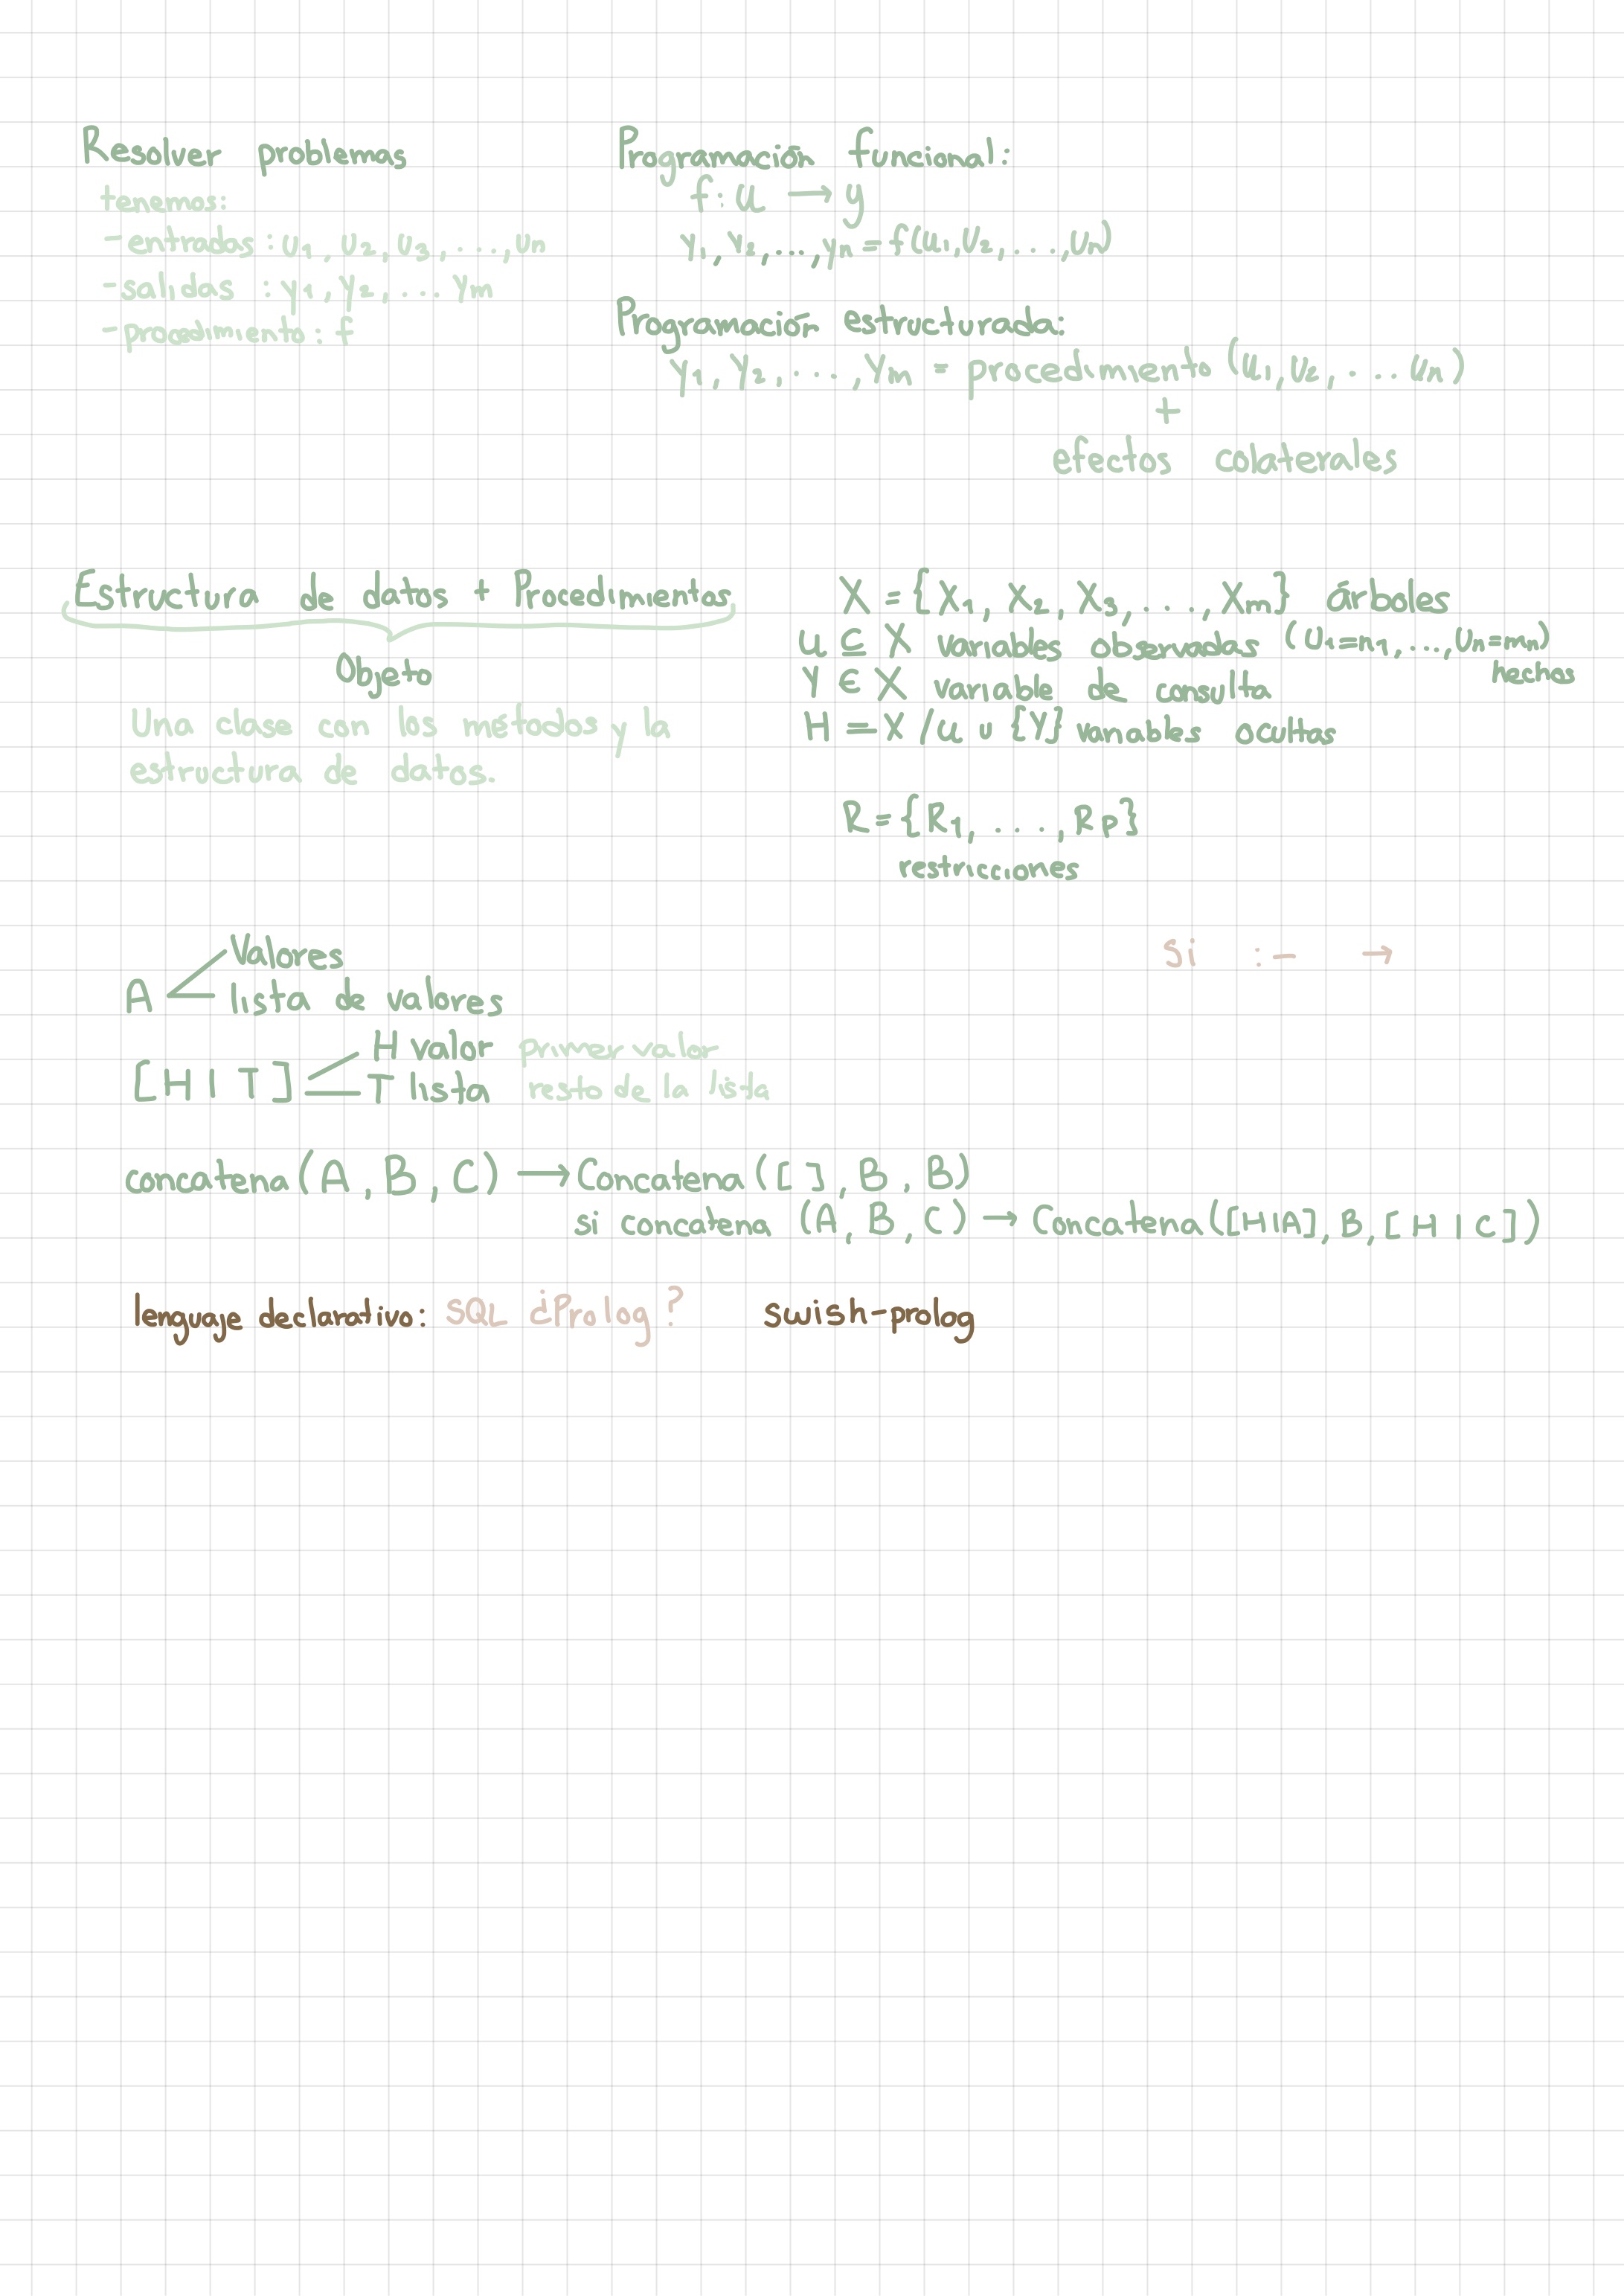 Resolver problemas
tenemos:
- entradas : u1, u2, u3, ..., un
- salidas : y1, y2, ... ym
- prodimiento: f
Programación funcional:
f: u → y
y1, y2, ..., ym = f(u1, u2, ..., un)
Programación estructurada:
y1, y2, ..., ym = procedimiento (u1, u2, ... un)
+
efectos colaterales
Estructura de datos + Procedimientos
Objeto
Una clase con los métodos y la
estructura de datos.
X = {X1, X2, X3, ..., Xm} árboles
U ⊆ X variables observadas (U1=n1, ..., Un=mn)
hechos
Y ∈ X variable de consulta
H = X / U ∪ {Y} variables ocultas
R = {R1, ..., Rp}
restricciones
si :- →
Valores
A lista de valores
H valor primer valor
[H | T] T lista resto de la lista
concatena (A, B, C) → Concatena ([ ], B, B)
si concatena (A, B, C) → Concatena ([H|A], B, [H | C])
lenguaje declarativo: SQL ¿Prolog? swish-prolog